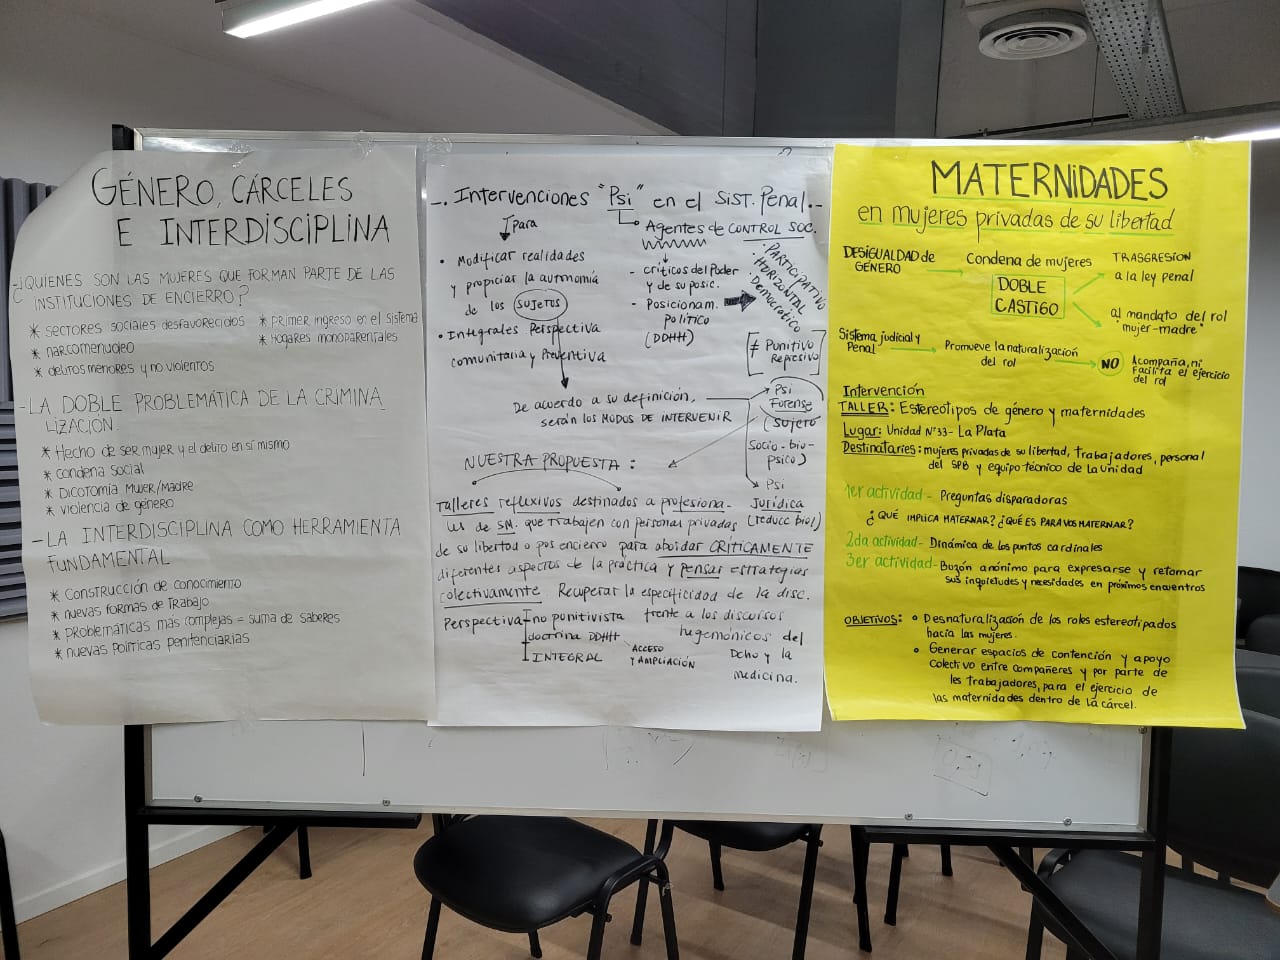 GÉNERO, CÁRCELES
E INTERDISCIPLINA
-¿QUIENES SON LAS MUJERES QUE FORMAN PARTE DE LAS
INSTITUCIONES DE ENCIERRO?
* sectores sociales desfavorecidos
* Primer ingreso en el sistema
* narcomenudeo
* Hogares monoparentales
* delitos menores y no violentos
-LA DOBLE PROBLEMÁTICA DE LA CRIMINA
LIZACIÓN.
* Hecho de ser mujer y el delito en sí mismo
* condena social
* Dicotomia Mujer/Madre
* violencia de género
- LA INTERDISCIPLINA COMO HERRAMIENTA
FUNDAMENTAL
* Construcción de conocimiento
* nuevas formas de Trabajo
* Problemáticas más complejas = suma de saberes
* nuevas Políticas penitenciarias
-. Intervenciones "Psi" en el SIST. Penal.-
para
Agentes de CONTROL SOC.
• Modificar realidades
y propiciar la autonomía
de los sujetos
• Integrales Perspectiva
comunitaria y Preventiva
- críticos del Poder
y de su posic.
- Posicionam.
político
(DDHH)
· PARTICIPATIVO
· HORIZONTAL
· Democrático
≠ Punitivo
Represivo
De acuerdo a su definición,
serán los MODOS DE INTERVENIR
Psi
Forense
(sujeto
Socio-bio-
psico)
Psi
Jurídica
(reducc biol)
NUESTRA PROPUESTA :
Talleres reflexivos destinados a profesiona-
les de SM. que trabajen con personas privadas
de su libertad o pos encierro para abordar CRÍTICAMENTE
diferentes aspectos de la práctica y pensar estrategias
colectivamente. Recuperar la especificidad de la disc.
Perspectiva
no punitivista
doctrina DDHH
INTEGRAL
ACCESO
Y AMPLIACIÓN
frente a los discursos
hegemónicos del
Dcho y la
medicina.
MATERNIDADES
en mujeres privadas de su libertad
DESIGUALDAD DE
GÉNERO
Condena de mujeres
DOBLE
CASTIGO
TRASGRESIÓN
a la ley penal
al mandato del rol
"mujer-madre"
Sistema judicial y
Penal
Promueve la naturalización
del rol
NO
Acompaña, ni
Facilita el ejercicio
del rol
Intervención
TALLER: Estereotipos de género y maternidades
Lugar: Unidad N°33- La Plata
Destinataries: mujeres privadas de su libertad, trabajadores, personal
del SPB y equipo técnico de la Unidad
1er actividad - Preguntas disparadoras
¿QUÉ IMPLICA MATERNAR? ¿QUÉ ES PARA VOS MATERNAR?
2da actividad - Dinámica de los puntos cardinales
3er actividad - Buzón anónimo para expresarse y retomar
sus inquietudes y necesidades en próximos encuentros
OBJETIVOS: • Desnaturalización de los roles estereotipados
hacia las mujeres.
• Generar espacios de contención y apoyo
colectivo entre compañeres y por parte de
les trabajadores, para el ejercicio de
las maternidades dentro de la cárcel.